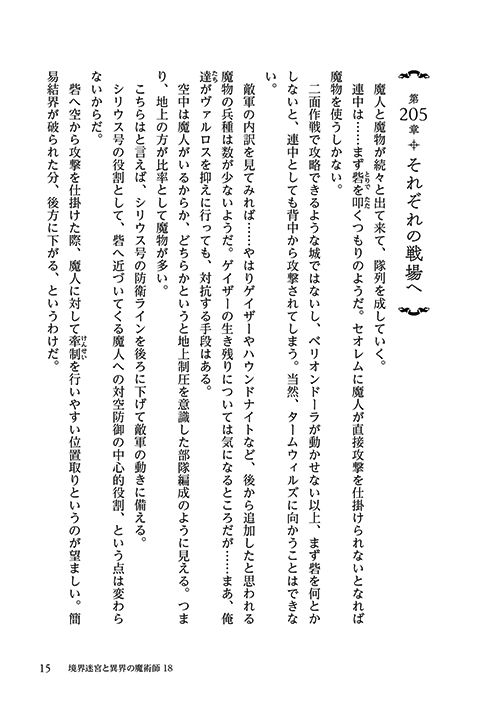 第205章 それぞれの戦場へ
魔人と魔物が続々と出て来て、隊列を成していく。
連中は……まず砦を叩くつもりのようだ。セオレムに魔人が直接攻撃を仕掛けられないとなれば
魔物を使うしかない。
二面作戦で攻略できるような城ではないし、ベリオンドーラが動かせない以上、まず砦を何とか
しないと、連中としても背中から攻撃されてしまう。当然、タームウィルズに向かうことはできな
い。
敵軍の内訳を見てみれば……やはりゲイザーやハウンドナイトなど、後から追加したと思われる
魔物の兵種は数が少ないようだ。ゲイザーの生き残りについては気になるところだが……まあ、俺
達がヴァルロスを抑えに行っても、対抗する手段はある。
空中は魔人がいるからか、どちらかというと地上制圧を意識した部隊編成のように見える。つま
り、地上の方が比率として魔物が多い。
こちらはと言えば、シリウス号の防衛ラインを後ろに下げて敵軍の動きに備える。
シリウス号の役割として、砦へ近づいてくる魔人への対空防御の中心的役割、という点は変わら
ないからだ。
砦へ空から攻撃を仕掛けた際、魔人に対して牽制を行いやすい位置取りというのが望ましい。簡
易結界が破られた分、後方に下がる、というわけだ。
15 境界迷宮と異界の魔術師 18